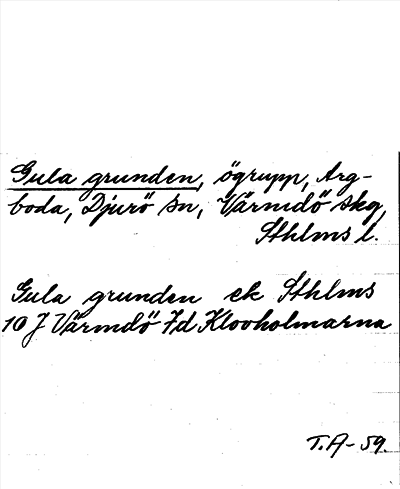 Gula grunden, ögrupp, Arg-
boda, Djurö sn, Värmdö skg,
Sthlms l.
Gula grunden ek Sthlms
10 J Värmdö 7d Klovholmarna
T.A-59.